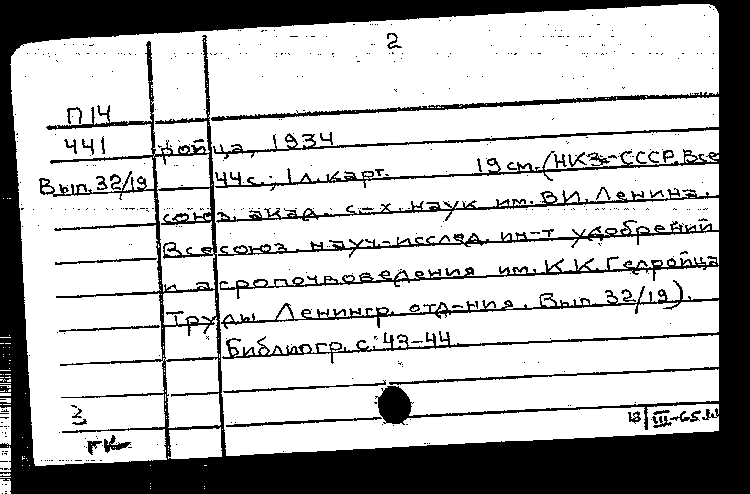 2
П14
441 ройца, 1934
Вып. 32/19 44с.; 1 л. карт. 19 см. (НКЗ-СССР. Все
союз. акад. с-х. наук им. В.И. Ленина.
Всесоюз. науч-исслед. ин-т удобрений
и агропочвоведения им. К.К. Гедройца
Труды Ленингр. отд-ния. Вып. 32/19).
Библиогр. с. 43-44
3
13/III-65
ГК